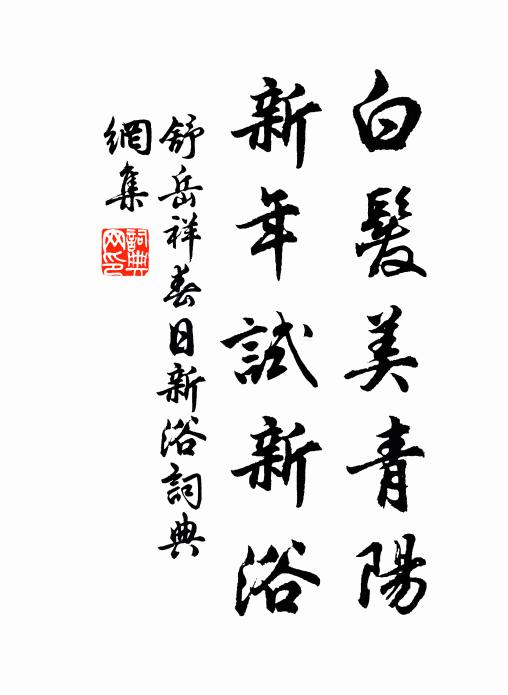 白髮美青陽
新年試新浴
舒岳祥春日新浴詞典
網集
詞典
网印